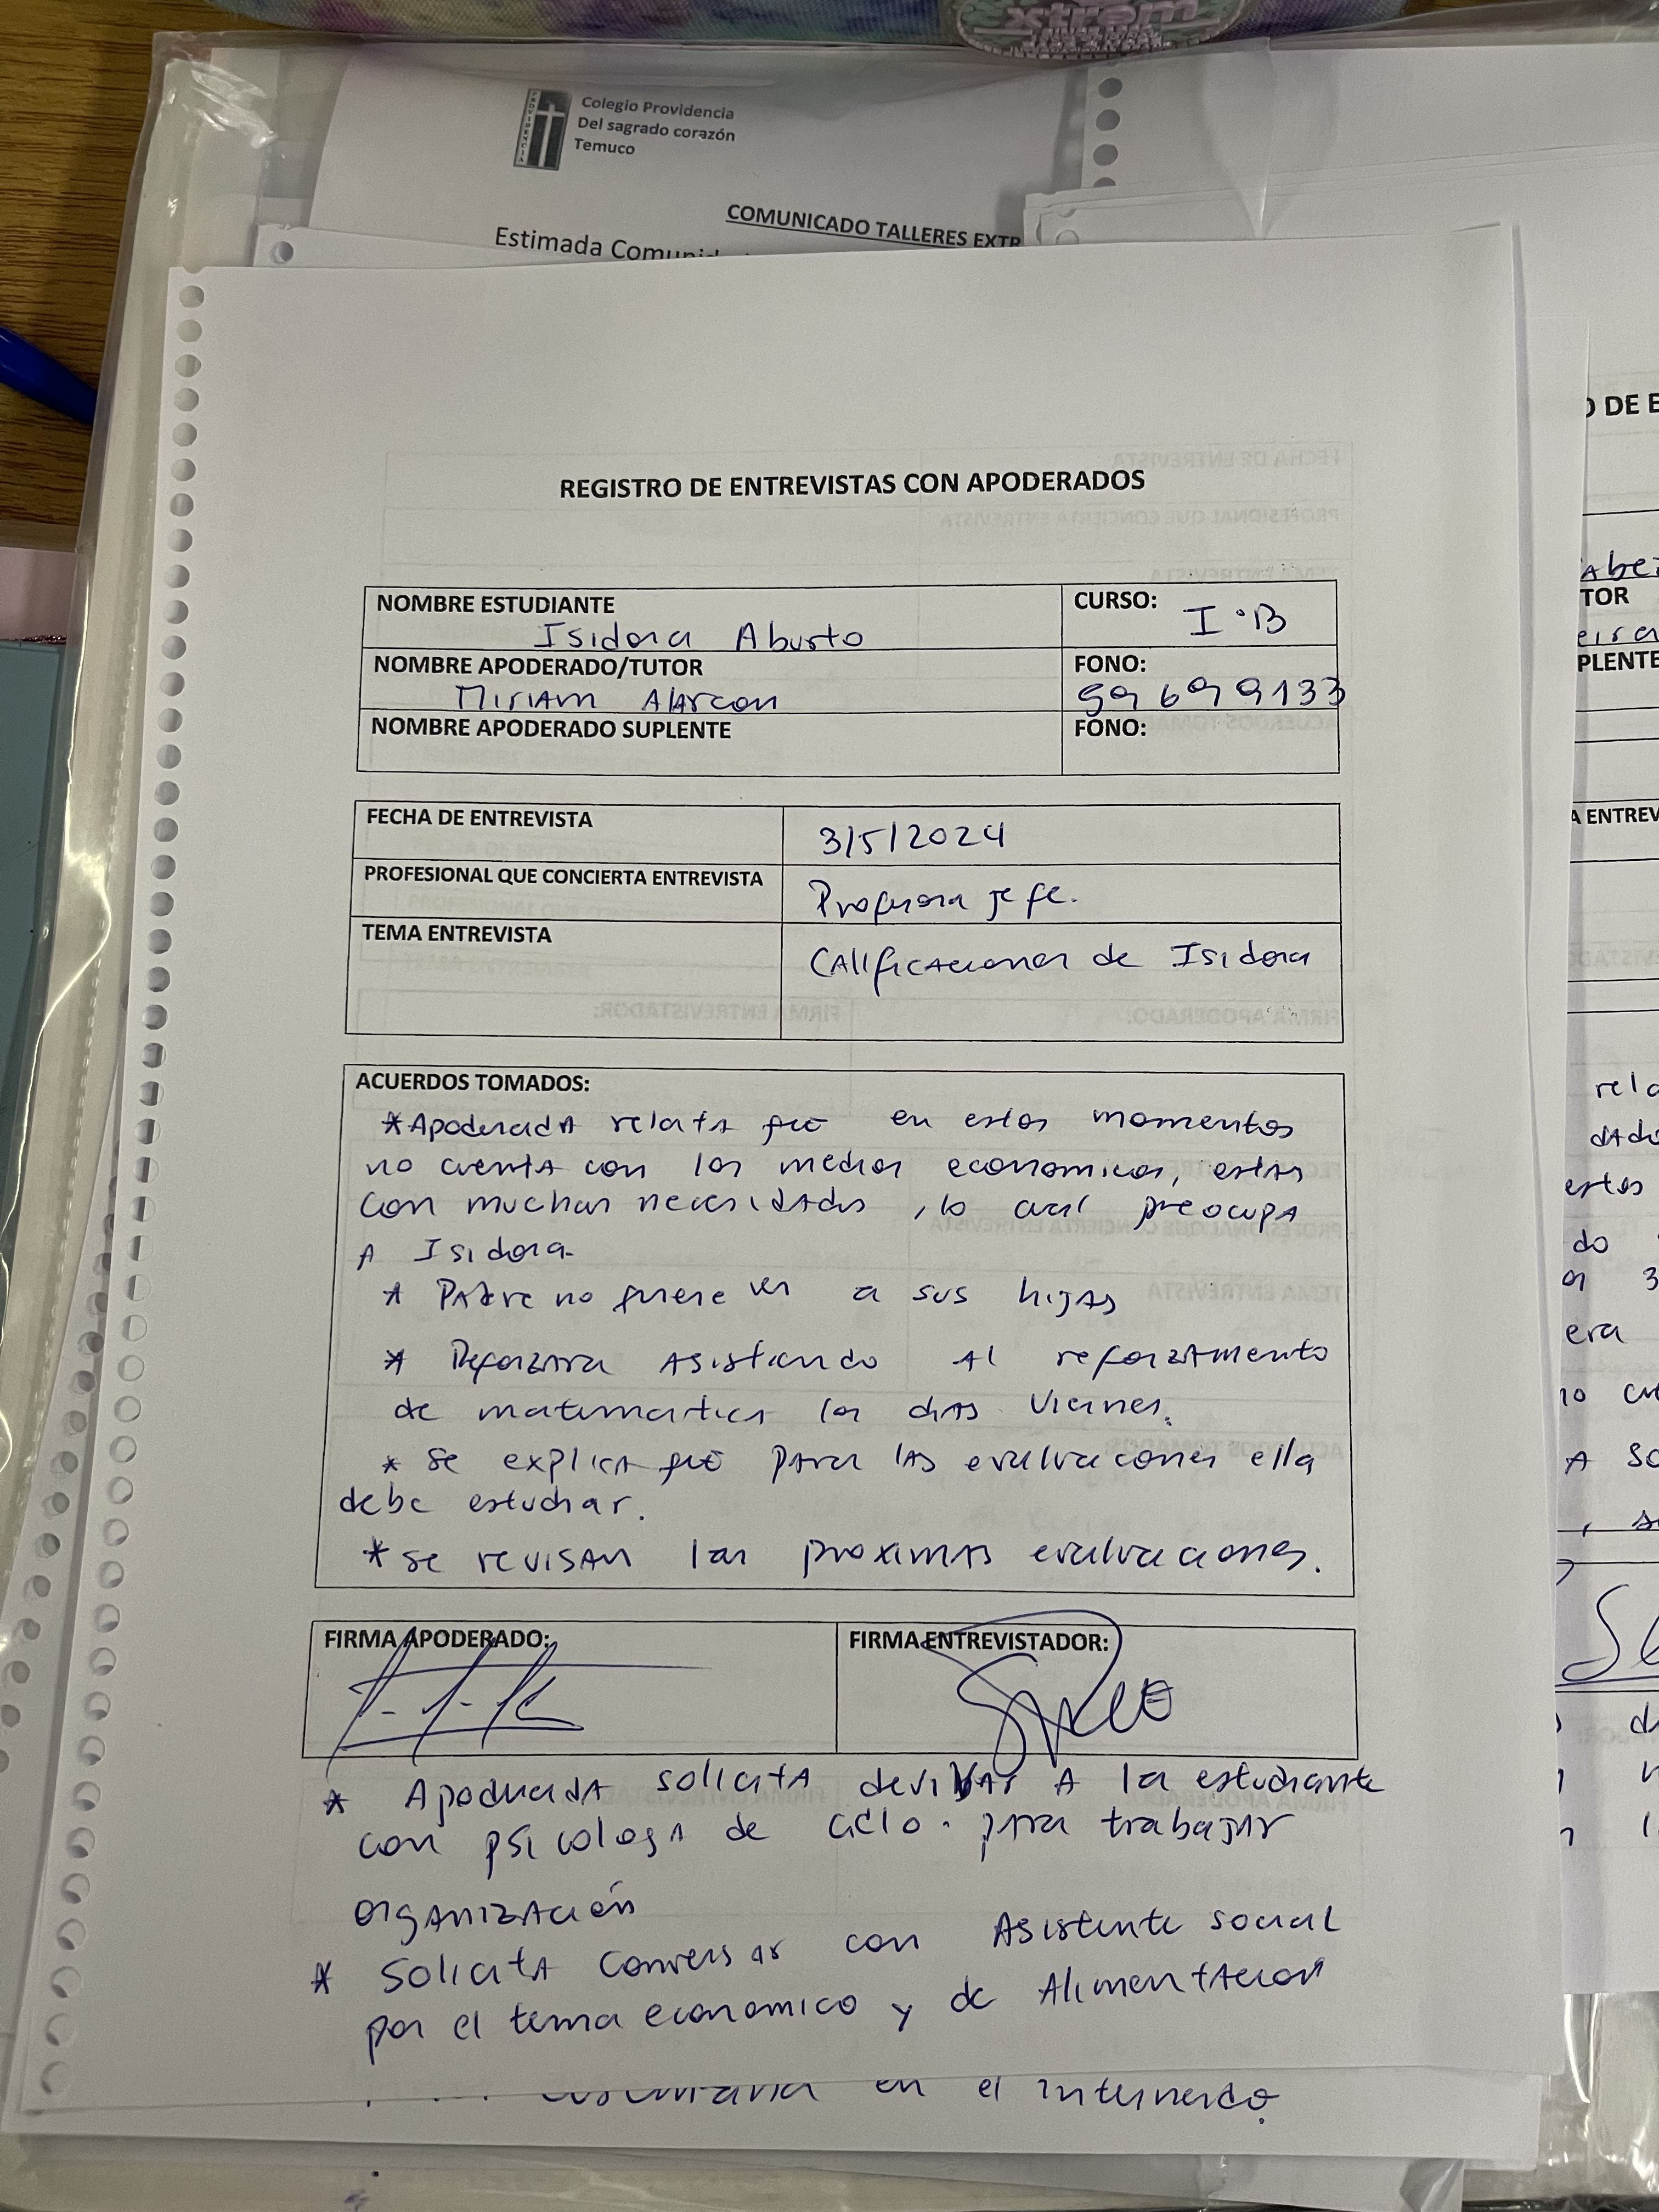 xtrem
Colegio Providencia
Del sagrado corazón
Temuco
PROVIDENCIA
COMUNICADO TALLERES EXTR
Estimada Comunid
REGISTRO DE ENTREVISTAS CON APODERADOS
NOMBRE ESTUDIANTE
Isidora Aburto
CURSO: I°B
NOMBRE APODERADO/TUTOR
Miriam Alarcon
FONO:
99699133
NOMBRE APODERADO SUPLENTE
FONO:
FECHA DE ENTREVISTA
3/5/2024
PROFESIONAL QUE CONCIERTA ENTREVISTA
Profesora jefe.
TEMA ENTREVISTA
Calificaciones de Isidora
ACUERDOS TOMADOS:
* Apoderada relata que en estos momentos
no cuenta con los medios economicos, estas
con muchas necesidades, lo cual preocupa
A Isidora.
* Padre no quiere ver a sus hijas
* Reforzara asistiendo al reforzamiento
de matematica los dias viernes.
* Se explica que para las evaluaciones ella
debe estudiar.
* se revisan las proximas evaluaciones.
FIRMA APODERADO:
FIRMA ENTREVISTADOR:
* Apoderada solicita derivar a la estudiante
con psicologa de ciclo. para trabajar
organización
* Solicita conversar con Asistente social
por el tema economico y de Alimentacion
en el internado.
O DE E
TOR
PLENTE
A ENTREV
era
do